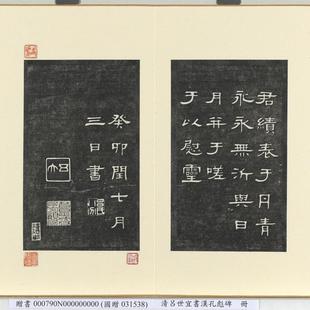 君績表于丹青
永永無沂與日
月并于嗟
于以慰靈
癸卯閏七月
三日書
贈書 000790N000000000 (國贈 031538) 清呂世宜書漢孔彪碑 冊